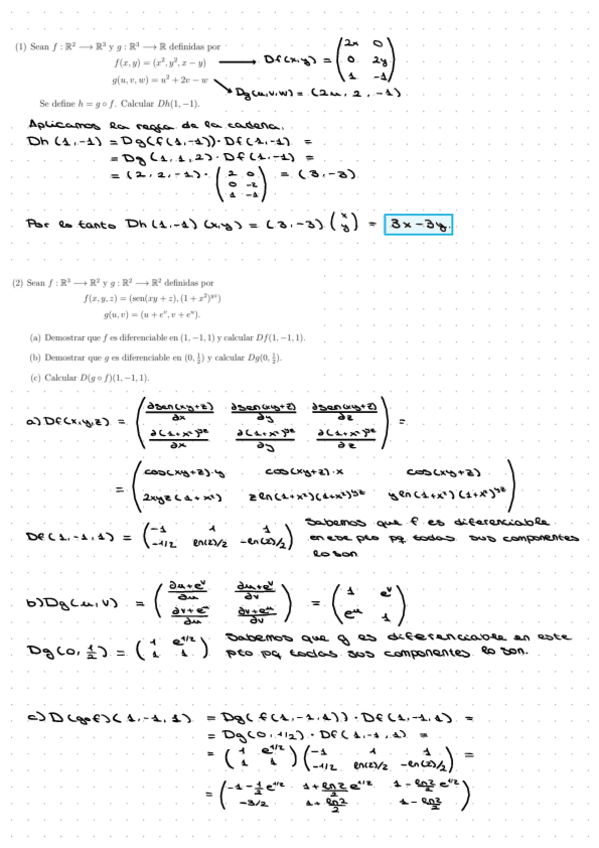 (1) Sean f : ℝ² ⟶ ℝ³ y g : ℝ³ ⟶ ℝ definidas por
f(x, y) = (x², y², x − y) ⟶ Df(x,y) = (2x 0; 0 2y; 1 -1)
g(u, v, w) = u² + 2v − w ↘ Dg(u,v,w) = (2u, 2, -1)
Se define h = g ∘ f. Calcular Dh(1, −1).
Aplicamos la regla de la cadena.
Dh (1,-1) = Dg(f(1,-1))·Df(1,-1) =
= Dg (1,1,2) · Df(1,-1) =
= (2,2,-1) · (2 0; 0 -2; 1 -1) = (3,-3)
Por lo tanto Dh(1,-1)(x,y) = (3,-3) (x; y) = 3x-3y.
(2) Sean f : ℝ³ ⟶ ℝ² y g : ℝ² ⟶ ℝ² definidas por
f(x, y, z) = (sen(xy + z), (1 + x²)^{yz})
g(u, v) = (u + e^v, v + e^u).
(a) Demostrar que f es diferenciable en (1, −1, 1) y calcular Df(1, −1, 1).
(b) Demostrar que g es diferenciable en (0, 1/2) y calcular Dg(0, 1/2).
(c) Calcular D(g ∘ f)(1, −1, 1).
a) Df(x,y,z) = (∂sen(xy+z)/∂x ∂sen(xy+z)/∂y ∂sen(xy+z)/∂z; ∂(1+x²)^{yz}/∂x ∂(1+x²)^{yz}/∂y ∂(1+x²)^{yz}/∂z) =
= (cos(xy+z)·y cos(xy+z)·x cos(xy+z); 2xyz(1+x²) zln(1+x²)(1+x²)^{yz} yln(1+x²)(1+x²)^{yz})
Df(1,-1,1) = (-1 1 1; -1/2 ln(2)/2 -ln(2)/2) Sabemos que f es diferenciable
en ese pto pq todas sus componentes
lo son
b) Dg(u,v) = (∂u+e^v/∂u ∂u+e^v/∂v; ∂v+e^u/∂u ∂v+e^u/∂v) = (1 e^v; e^u 1)
Dg(0, 1/2) = (1 e^{1/2}; 1 1) Sabemos que g es diferenciable en este
pto pq todas sus componentes lo son.
c) D(g∘f)(1,-1,1) = Dg(f(1,-1,1))·Df(1,-1,1) =
= Dg(0,1/2) · Df(1,-1,1) =
= (1 e^{1/2}; 1 1) (-1 1 1; -1/2 ln(2)/2 -ln(2)/2) =
= (-1-1/2 e^{1/2} 1+ln2/2 e^{1/2} 1-ln2/2 e^{1/2}; -3/2 1+ln2/2 1-ln2/2)